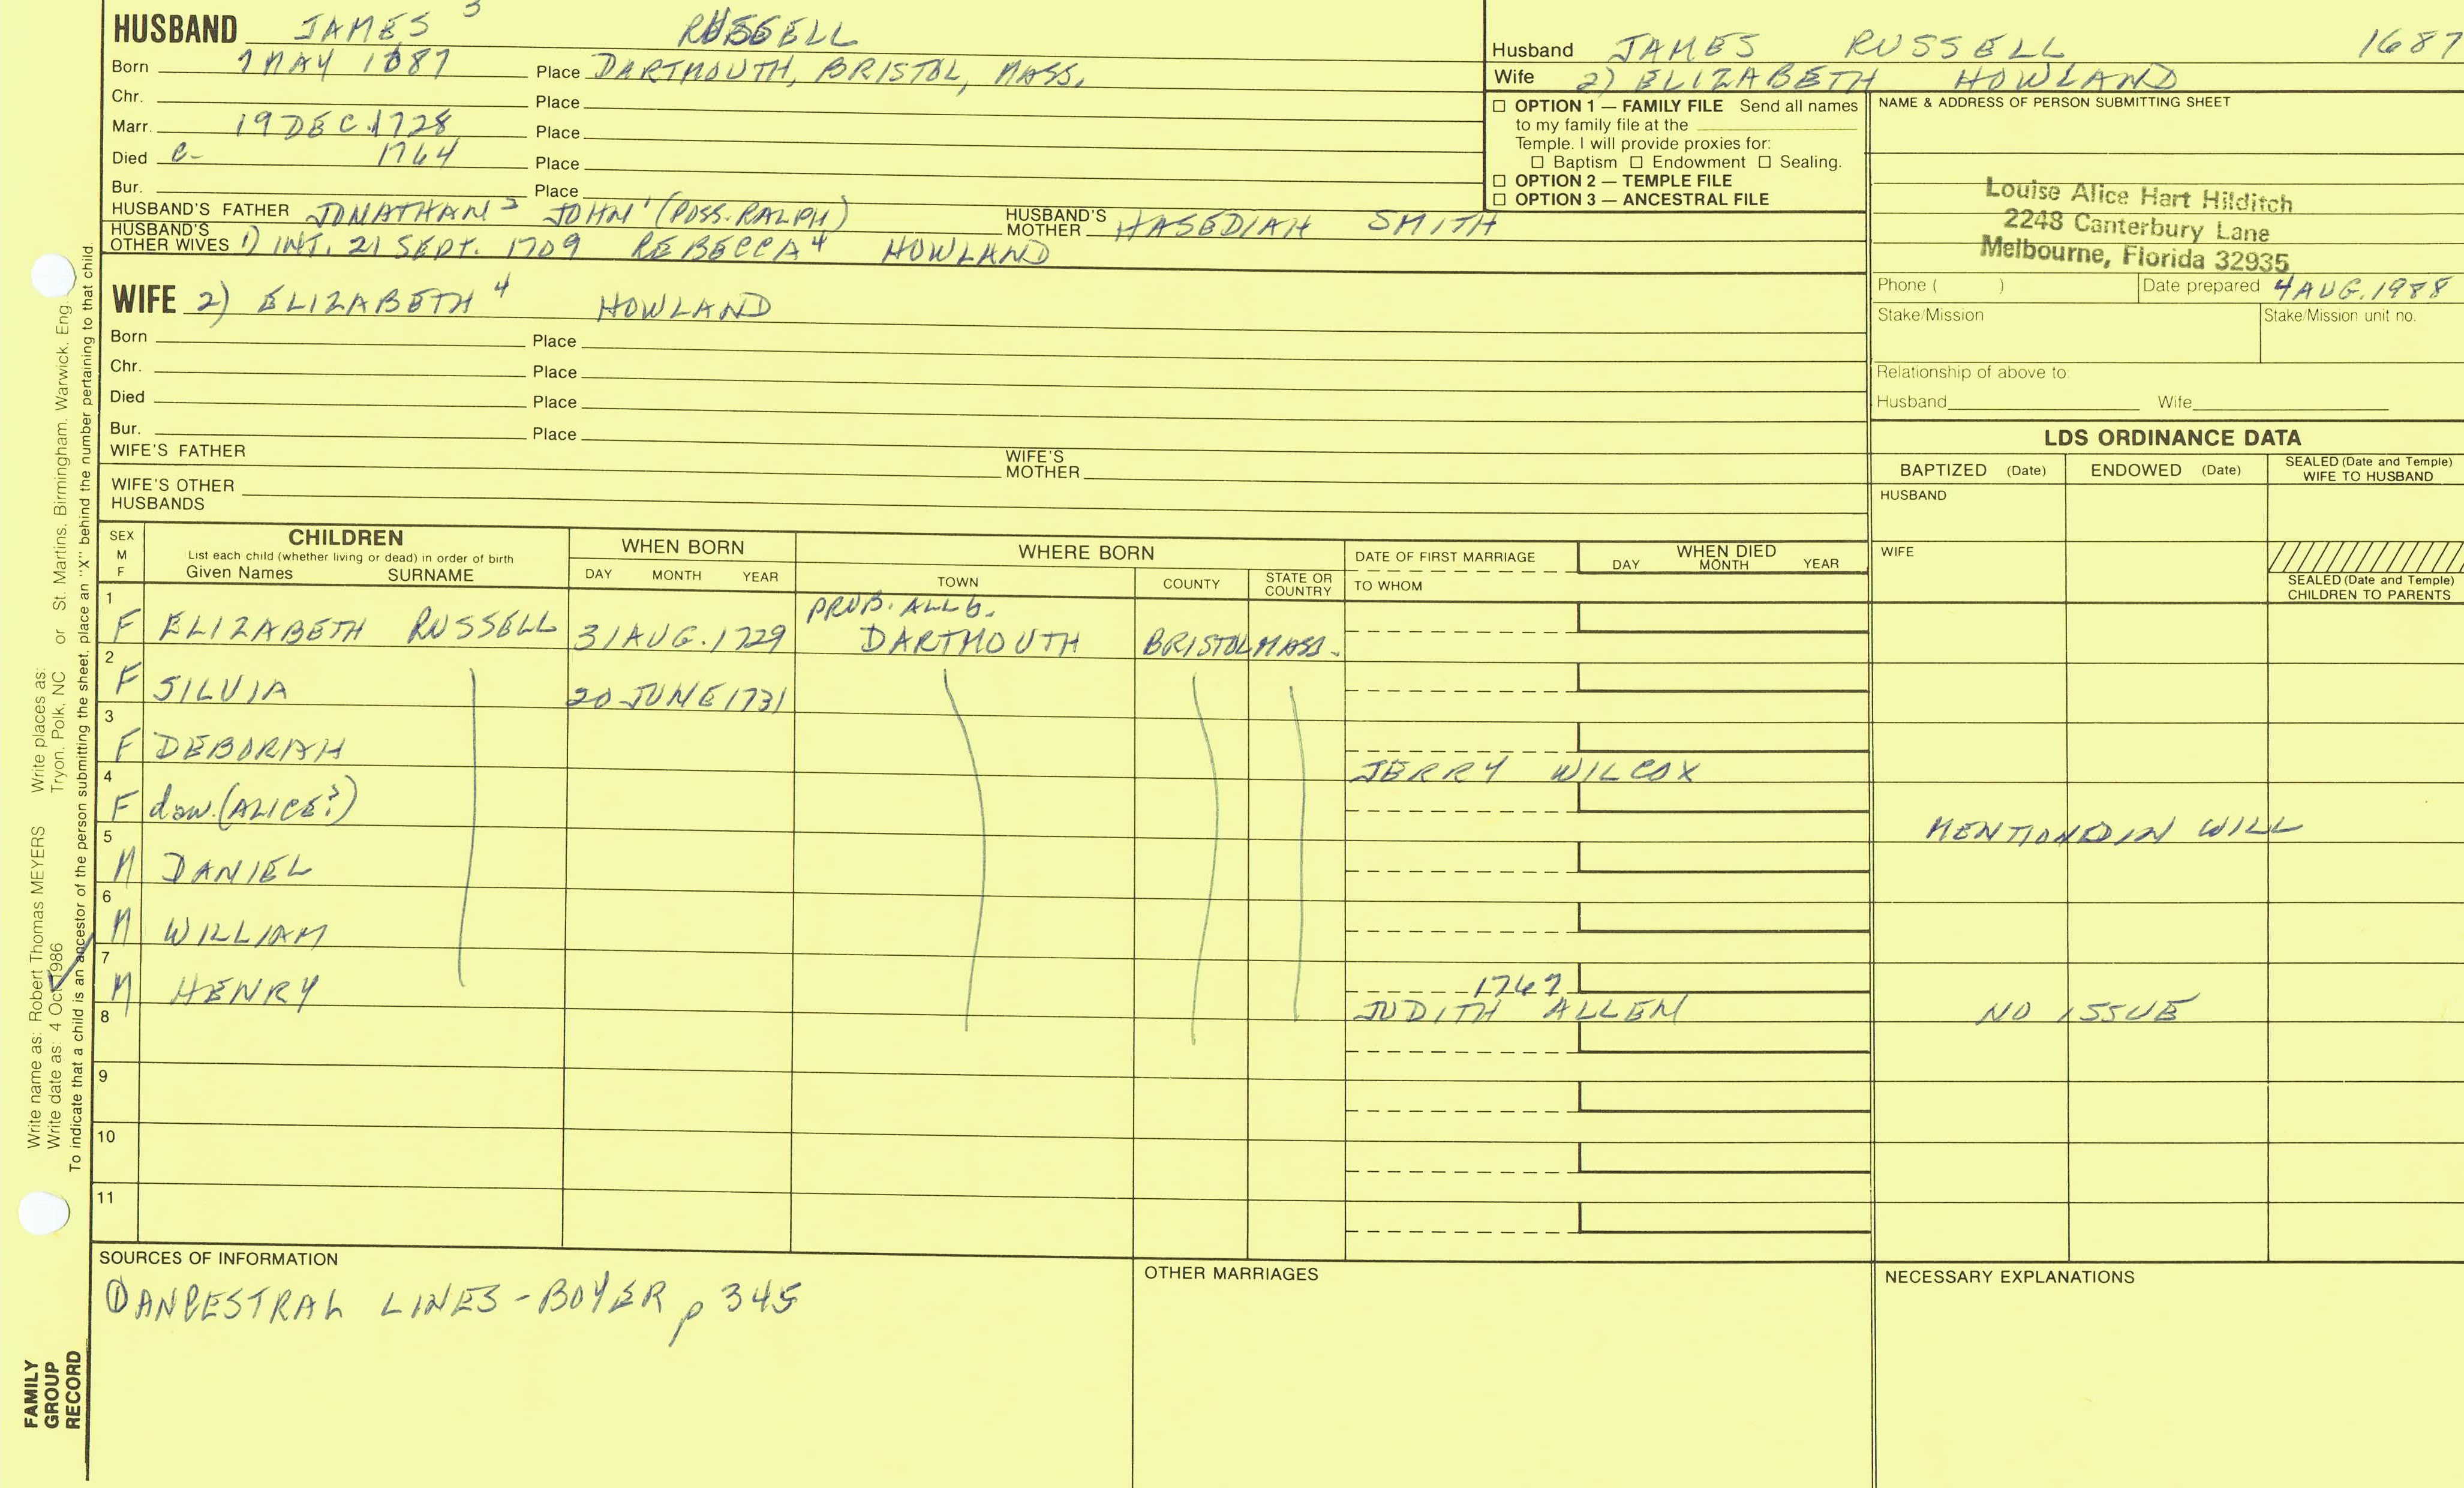 HUSBAND JAMES 3 RUSSELL
Born 7 MAY 1687 Place DARTMOUTH, BRISTOL, MASS.
Chr. Place
Marr. 19 DEC. 1728 Place
Died c- 1764 Place
Bur. Place
HUSBAND'S FATHER JONATHAN 2 JOHN 1 (POSS. RALPH) HUSBAND'S MOTHER HASEDIAH SMITH
HUSBAND'S OTHER WIVES 1) INT. 21 SEPT. 1709 REBECCA 4 HOWLAND
WIFE 2) ELIZABETH 4 HOWLAND
Born Place
Chr. Place
Died Place
Bur. Place
WIFE'S FATHER WIFE'S MOTHER
WIFE'S OTHER HUSBANDS
Husband JAMES RUSSELL 1687
Wife 2) ELIZABETH HOWLAND
☐ OPTION 1 — FAMILY FILE Send all names
to my family file at the
Temple. I will provide proxies for:
☐ Baptism ☐ Endowment ☐ Sealing.
☐ OPTION 2 — TEMPLE FILE
☐ OPTION 3 — ANCESTRAL FILE
NAME & ADDRESS OF PERSON SUBMITTING SHEET
Louise Alice Hart Hilditch
2248 Canterbury Lane
Melbourne, Florida 32935
Phone ( ) Date prepared 4 AUG. 1988
Stake/Mission Stake/Mission unit no.
Relationship of above to:
Husband Wife
LDS ORDINANCE DATA
BAPTIZED (Date) ENDOWED (Date) SEALED (Date and Temple) WIFE TO HUSBAND
HUSBAND
WIFE
SEALED (Date and Temple)
CHILDREN TO PARENTS
SEX M F CHILDREN WHEN BORN WHERE BORN DATE OF FIRST MARRIAGE WHEN DIED
List each child (whether living or dead) in order of birth
Given Names SURNAME DAY MONTH YEAR TOWN COUNTY STATE OR COUNTRY TO WHOM DAY MONTH YEAR
PROB. ALL b.
1 F ELIZABETH RUSSELL 31 AUG. 1729 DARTMOUTH BRISTOL MASS.
2 F SILVIA 20 JUNE 1731
3 F DEBORAH JERRY WILCOX
4 F daw. (ALICE?) MENTIONED IN WILL
5 M DANIEL
6 M WILLIAM
7 M HENRY 1767 JUDITH ALLEN NO ISSUE
8
9
10
11
SOURCES OF INFORMATION
① ANCESTRAL LINES - BOYER p 345
OTHER MARRIAGES
NECESSARY EXPLANATIONS
Write name as: Robert Thomas MEYERS Write places as: St. Martins, Birmingham, Warwick, Eng
Write date as: 4 Oct 1986 Tryon, Polk, NC or
To indicate that a child is an ancestor of the person submitting the sheet, place an "X" behind the number pertaining to that child.
FAMILY
GROUP
RECORD